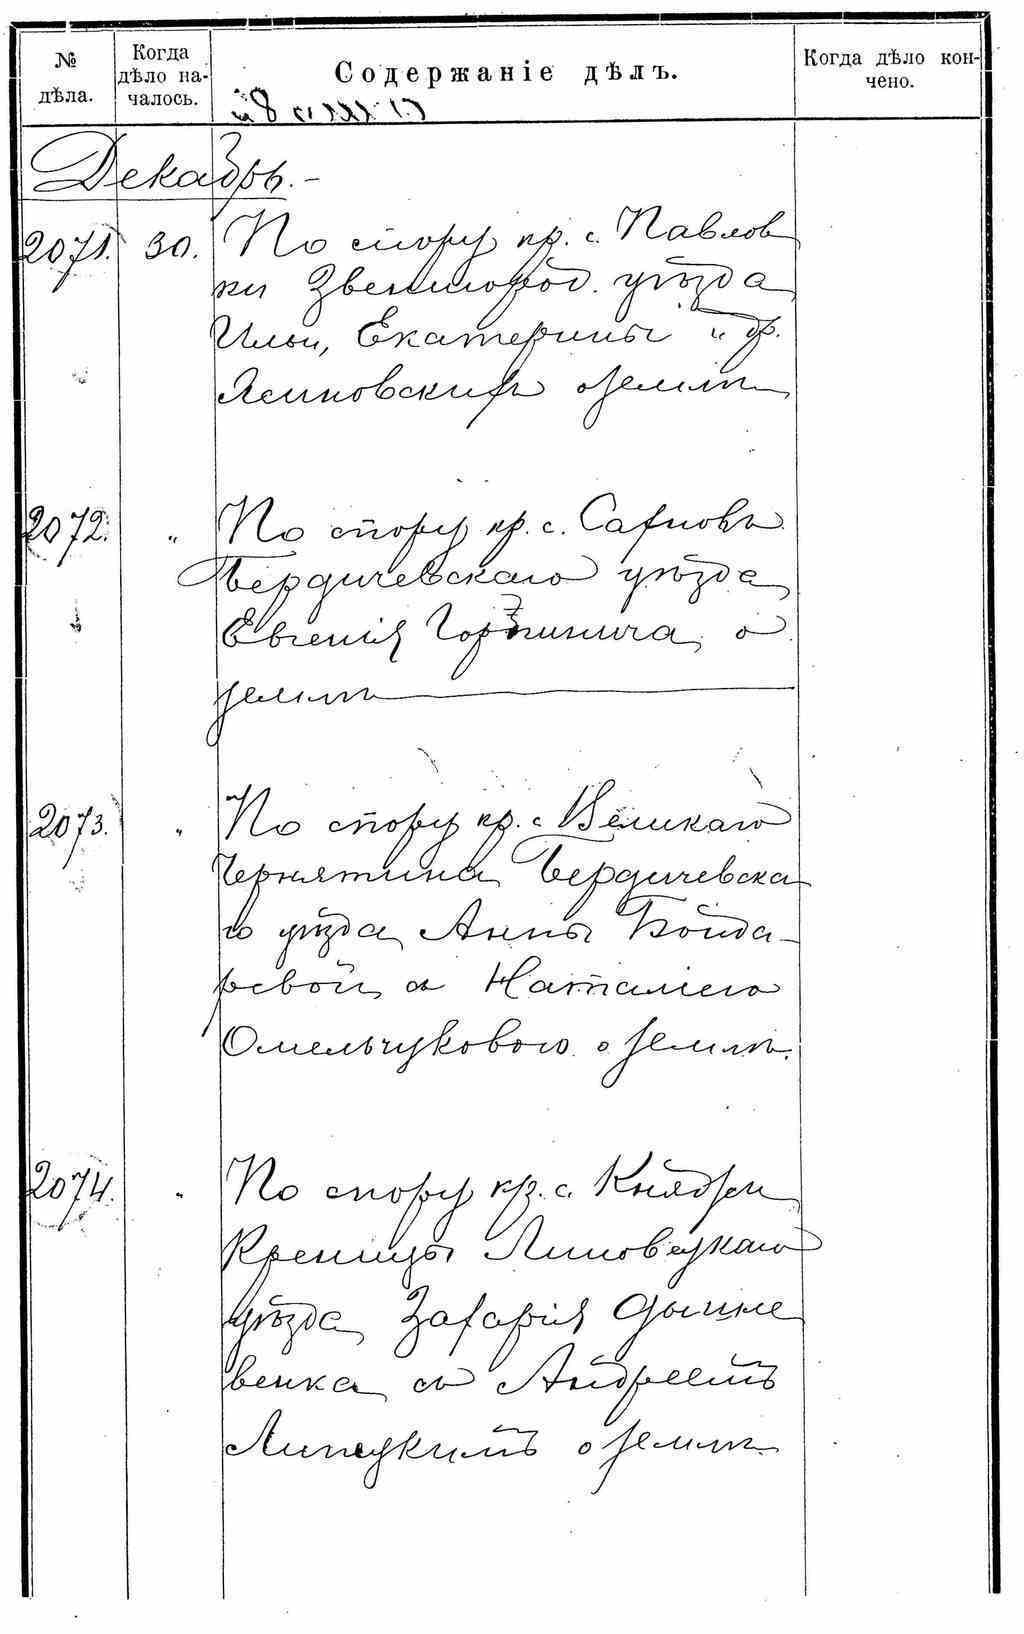 № дѣла.
Когда дѣло на-
чалось.
Содержаніе дѣлъ.
Когда дѣло кон-
чено.
Декабрь.-
2071. 30. По спору кр. с. Павлов
ки Звенигород. уѣзда
Ильи, Екатерины и др.
Ясиновскихъ о землѣ
2072. " По спору кр. с.
Бердичевскаго уѣзда
Евгенія о
землѣ
2073. " По спору кр. с. Великаго
Чернятина Бердичевска
го уѣзда Анны Бонда-
ревой съ Наталіею
Омельчуковою о землѣ.
2074. " По спору кр. с. Княжей
Креницы Липовецкаго
уѣзда Захарія
венка съ Андреемъ
Липецкимъ о землѣ